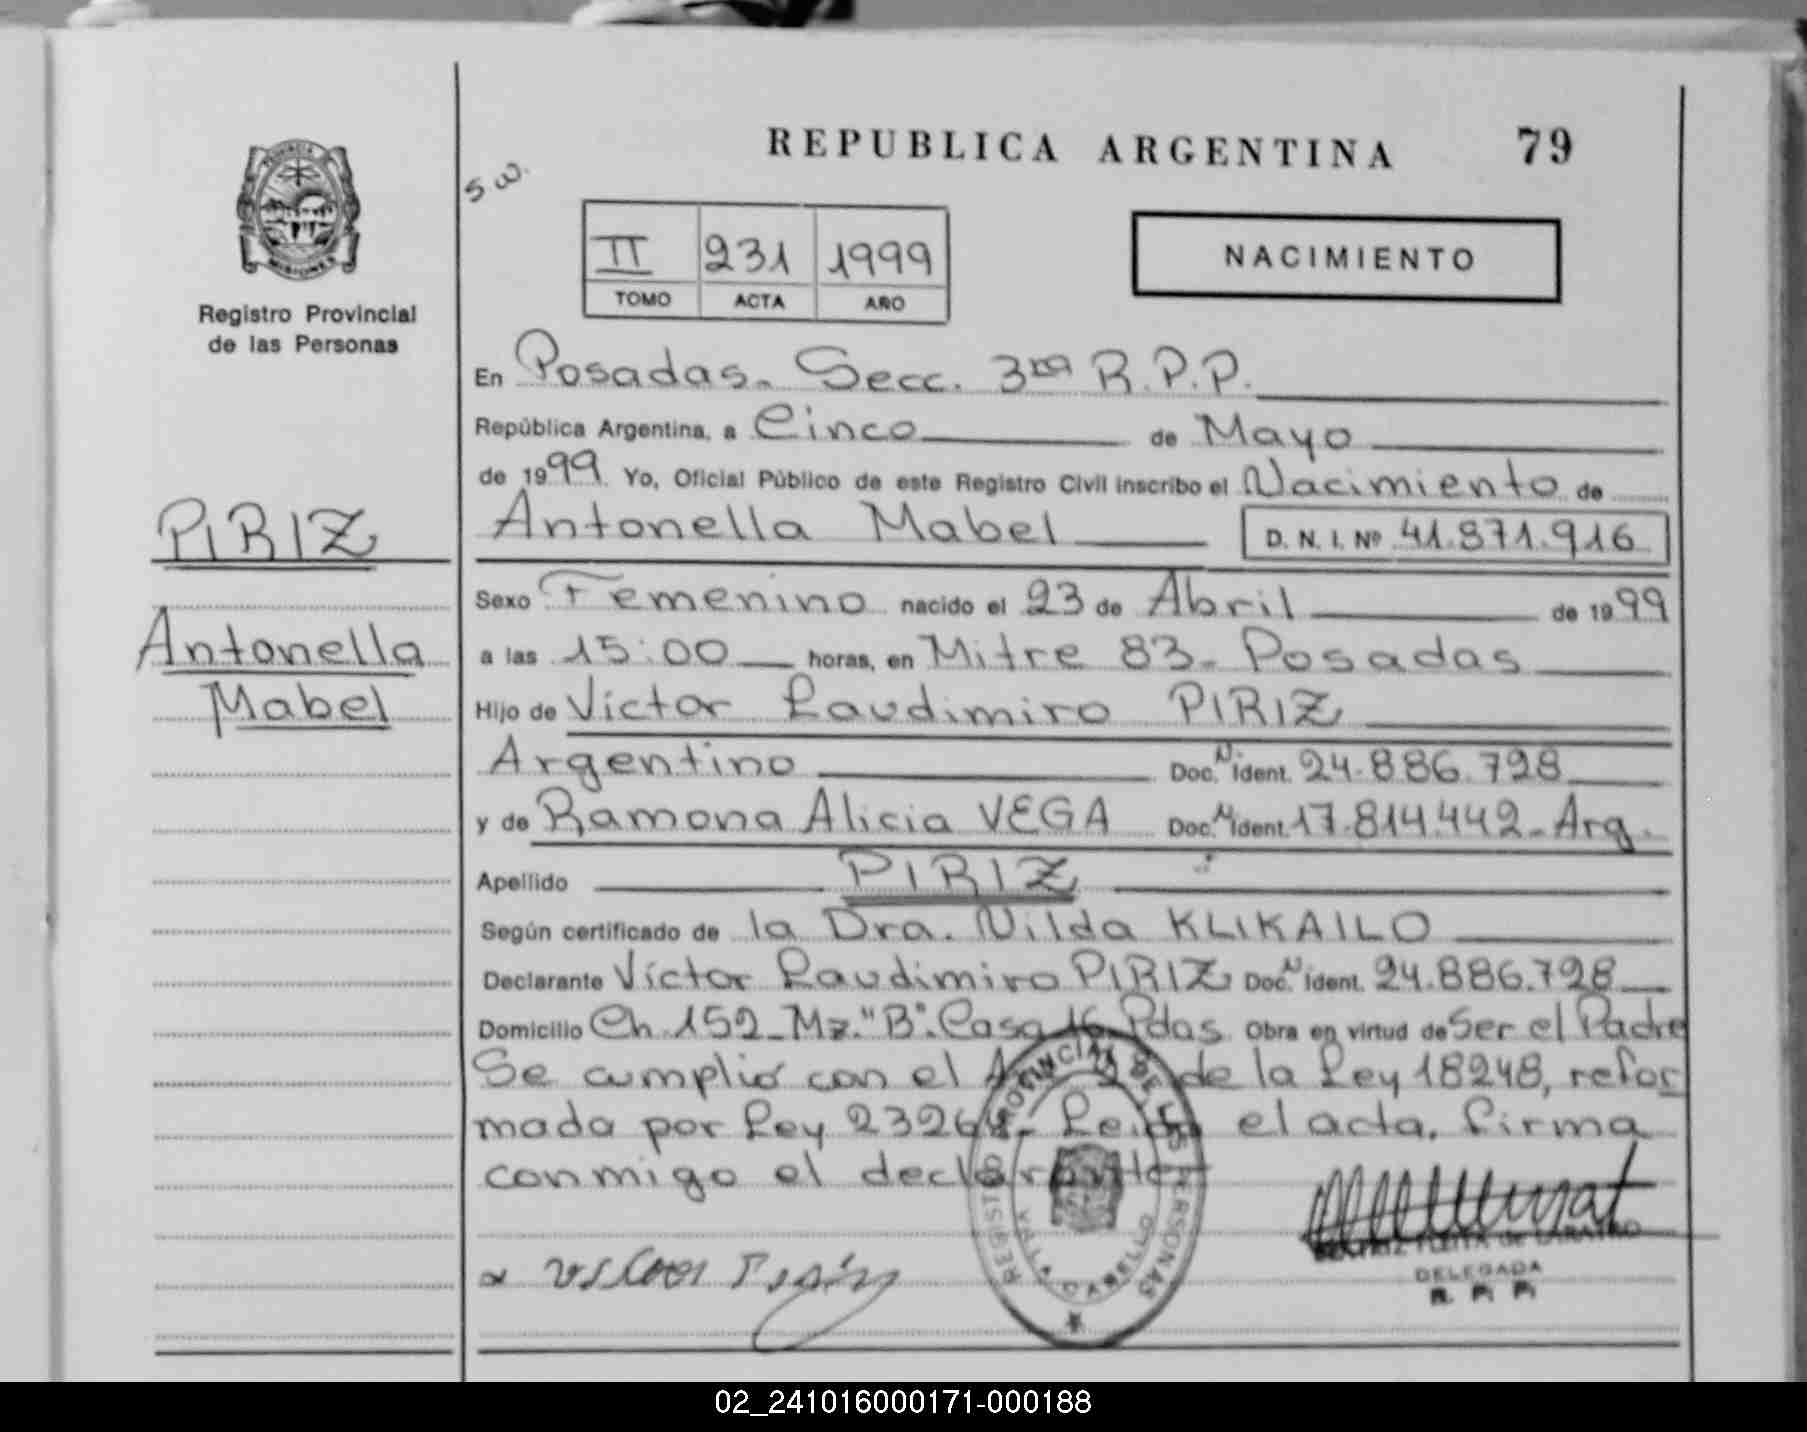 REPUBLICA ARGENTINA 79
PROVINCIA DE
MISIONES
Registro Provincial
de las Personas
s.w.
II 231 1999
TOMO ACTA AÑO
NACIMIENTO
En Posadas - Secc. 3ra R.P.P.
República Argentina, a Cinco de Mayo
de 1999 Yo, Oficial Público de este Registro Civil inscribo el Nacimiento de
PIRIZ
Antonella Mabel D. N. I. Nº 41.871.916
Sexo Femenino nacido el 23 de Abril de 1999
Antonella
a las 15:00 horas, en Mitre 83 - Posadas
Mabel
Hijo de Víctor Laudimiro PIRIZ
Argentino Doc. N. ident. 24.886.798
y de Ramona Alicia VEGA Doc. N ident. 17.814.442 - Arg.
Apellido PIRIZ
Según certificado de la Dra. Nilda KLIKAILO
Declarante Víctor Laudimiro PIRIZ Doc. N ident. 24.886.798
Domicilio Ch. 152 - Mz. "B". Casa 16 Pdas. Obra en virtud de Ser el Padre
Se cumplió con el de la Ley 18248, refor
mada por Ley 23264 - Leída el acta, firma
conmigo el declarante
REGISTRO PROVINCIAL DE LAS PERSONAS
VILLA CABELLO
DELEGADA
R. P. P.
02_241016000171-000188